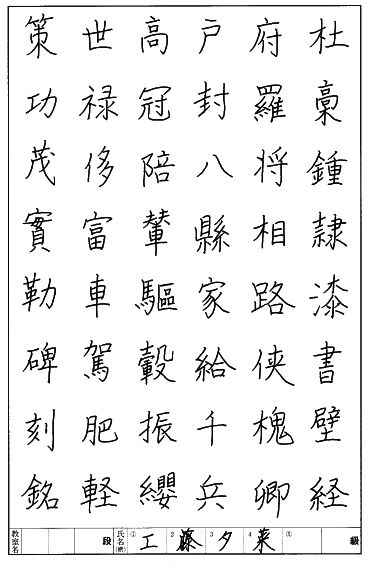 杜稾鍾隷漆書壁経
府羅将相路侠槐卿
戸封八縣家給千兵
高冠陪輦驅轂振纓
世禄侈富車駕肥軽
策功茂實勒碑刻銘
教室名 段 氏名(号) ① 工 2 藤 3 夕 4 菜 ⑤ 級